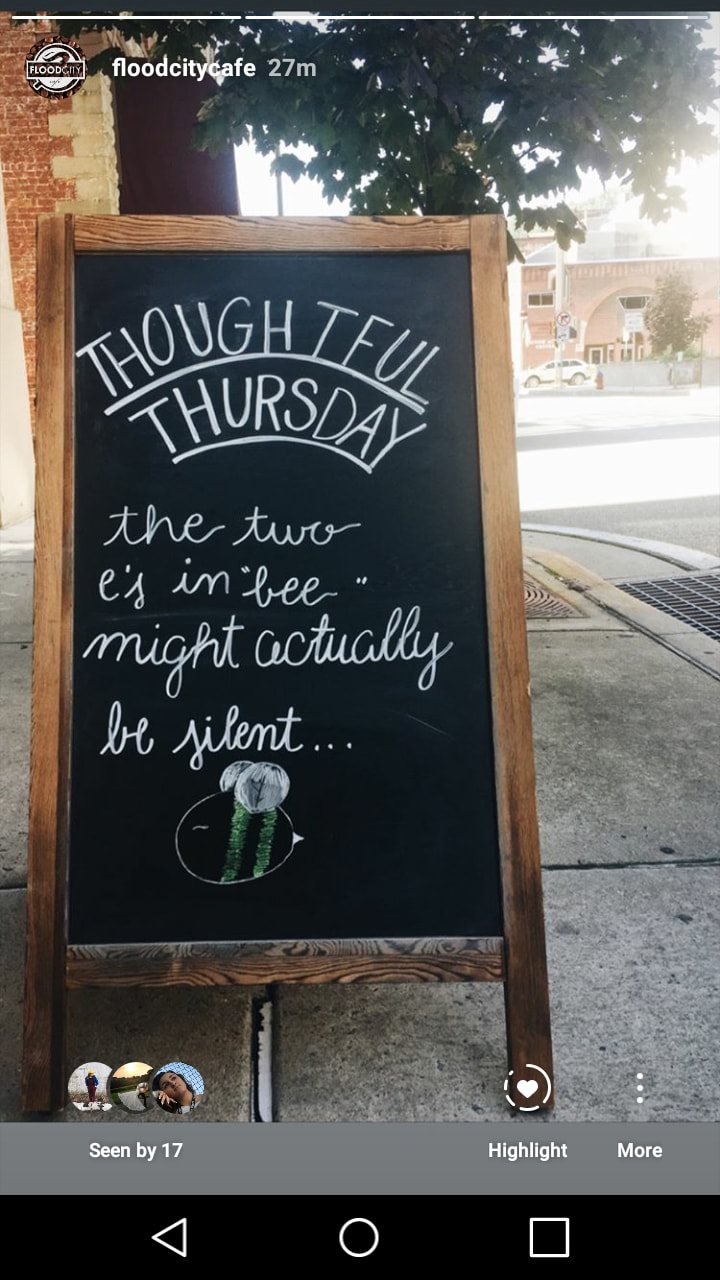 floodcitycafe 27m
FLOODCITY
THOUGHTFUL
THURSDAY
the two
e's in "bee"
might actually
be silent...
Seen by 17
Highlight
More